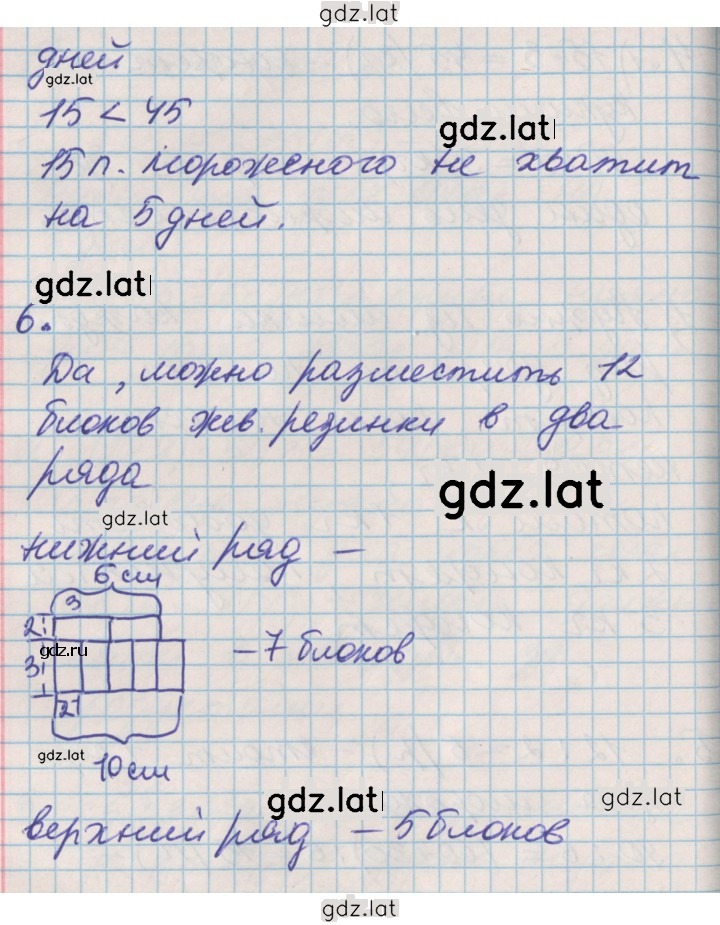 gdz.lat
дней
gdz.lat
15 < 45
gdz.lat
15 п. мороженого не хватит
на 5 дней.
gdz.lat
6.
Да, можно разместить 12
блоков жев. резинки в два
ряда
gdz.lat
gdz.lat
нижний ряд –
6 см
3
2
gdz.ru
3
– 7 блоков
2
gdz.lat
10 см
gdz.lat
gdz.lat
верхний ряд – 5 блоков
gdz.lat